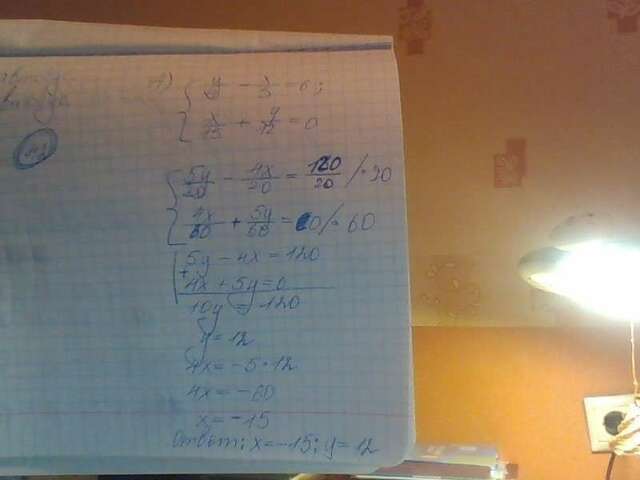 4) { y/4 - x/5 = 6;
{ x/15 + y/12 = 0
{ 5y/20 - 4x/20 = 120/20 /·20
{ 4x/60 + 5y/60 = 0/·60
5y - 4x = 120
+ 4x + 5y = 0
10y = 120
y = 12
4x = -5·12
4x = -60
x = -15
Ответ: x = -15; y = 12